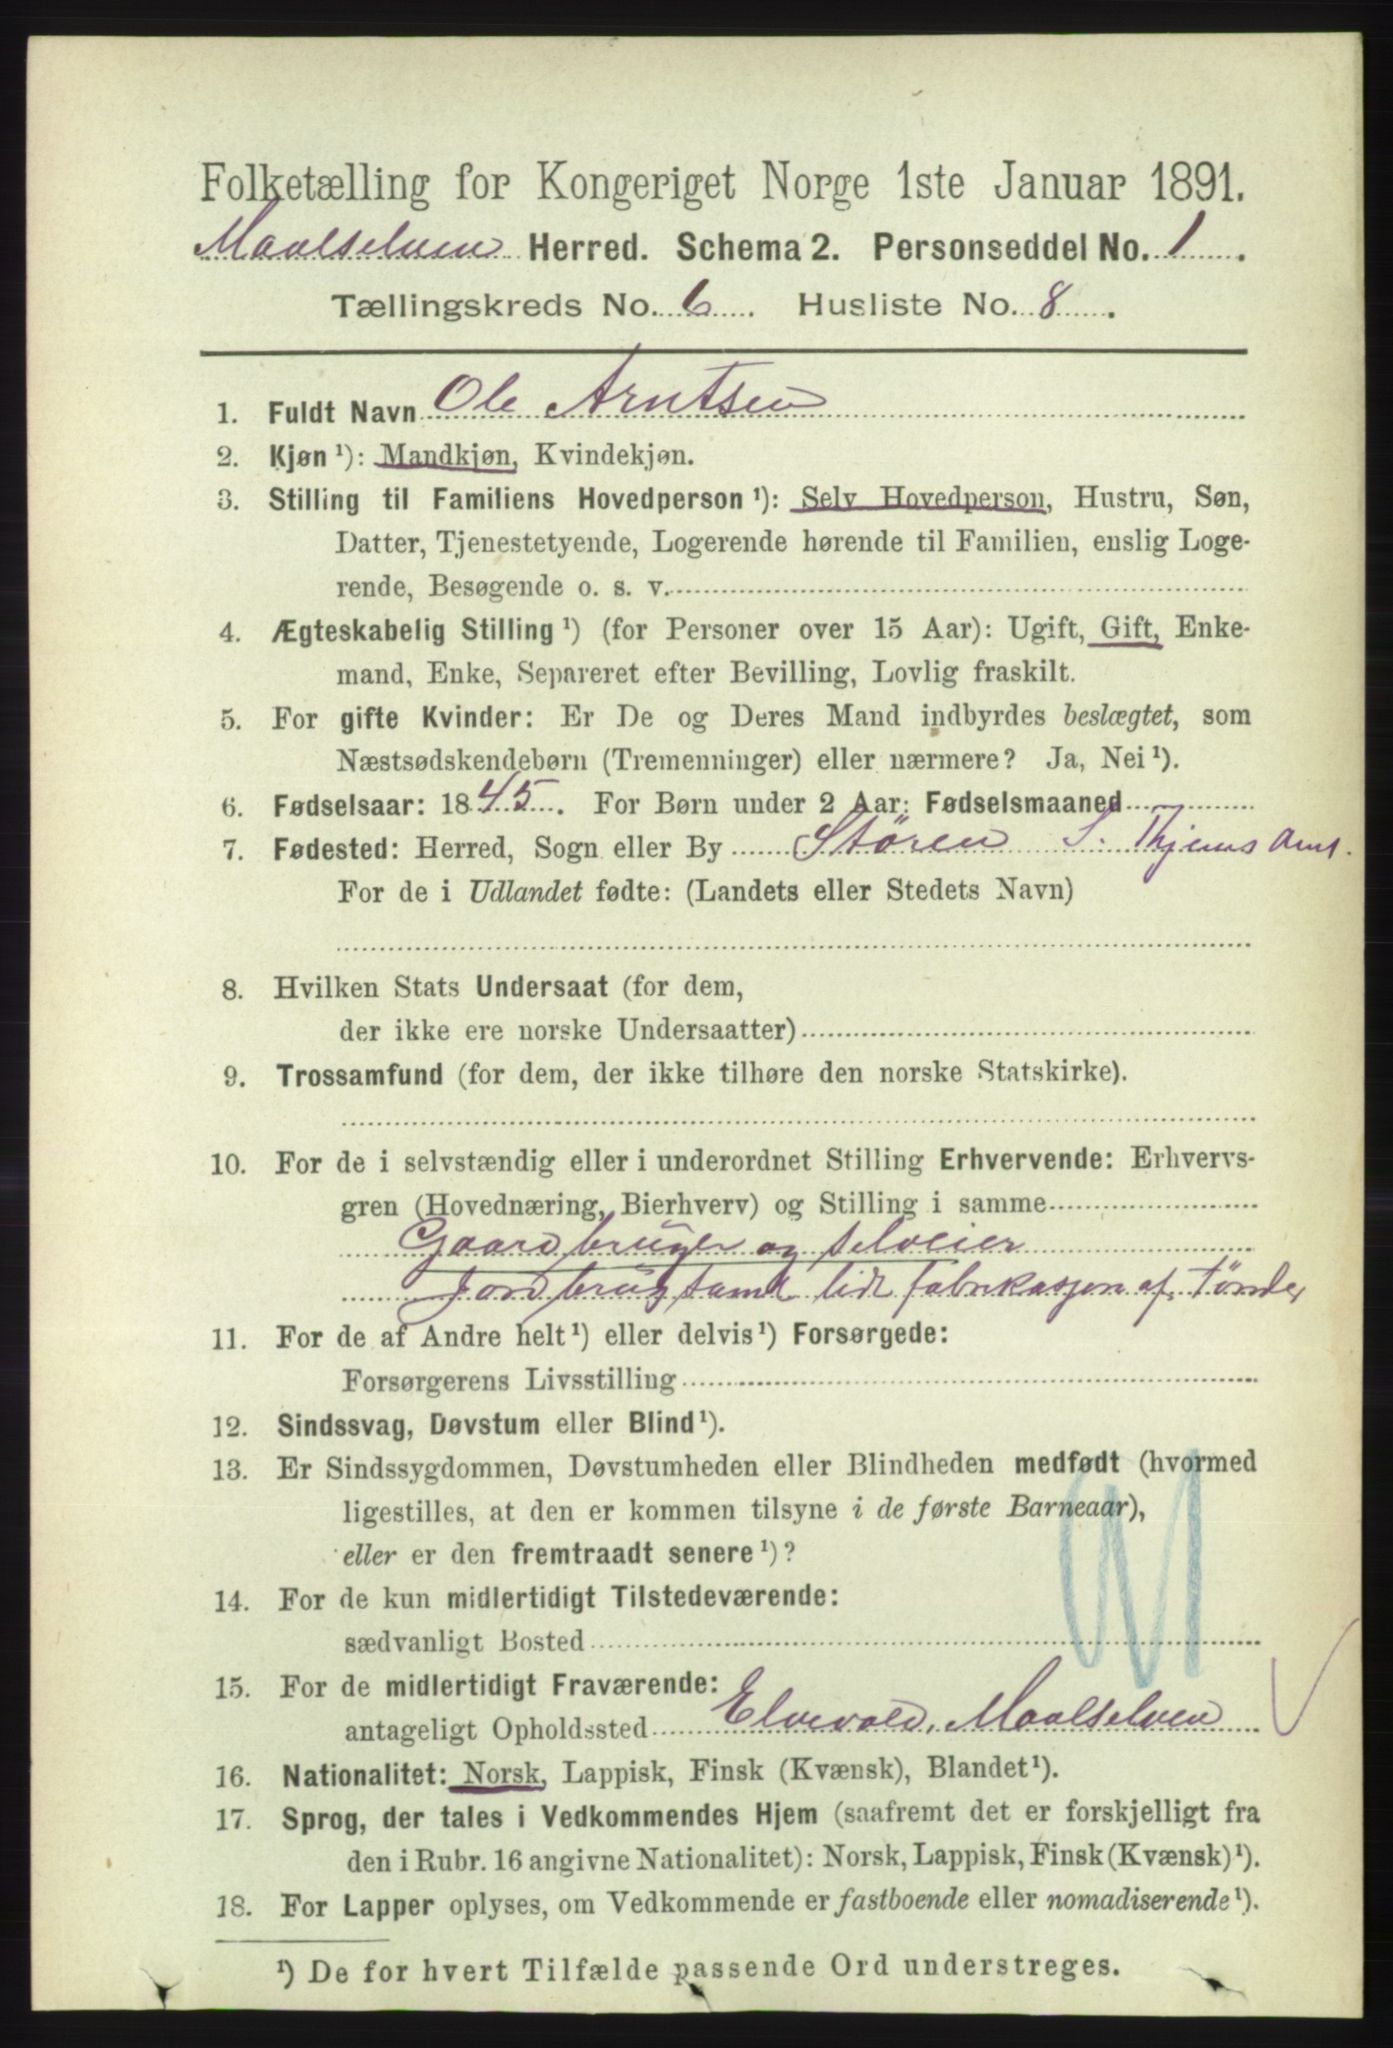 Folketælling for Kongeriget Norge 1ste Januar 1891.
Maalselven Herred. Schema 2. Personseddel No. 1.
Tællingskreds No. 6. Husliste No. 8.
1. Fuldt Navn Ole Arntsen
2. Kjøn ¹): Mandkjøn, Kvindekjøn.
3. Stilling til Familiens Hovedperson ¹): Selv Hovedperson, Hustru, Søn,
Datter, Tjenestetyende, Logerende hørende til Familien, enslig Loge-
rende, Besøgende o. s. v.
4. Ægteskabelig Stilling ¹) (for Personer over 15 Aar): Ugift, Gift, Enke-
mand, Enke, Separeret efter Bevilling, Lovlig fraskilt.
5. For gifte Kvinder: Er De og Deres Mand indbyrdes beslægtet, som
Næstsødskendebørn (Tremenninger) eller nærmere? Ja, Nei ¹).
6. Fødselsaar: 1845. For Børn under 2 Aar: Fødselsmaaned
7. Fødested: Herred, Sogn eller By Støren S. Thjems Amt.
For de i Udlandet fødte: (Landets eller Stedets Navn)
8. Hvilken Stats Undersaat (for dem,
der ikke ere norske Undersaatter)
9. Trossamfund (for dem, der ikke tilhøre den norske Statskirke).
10. For de i selvstændig eller i underordnet Stilling Erhvervende: Erhvervs-
gren (Hovednæring, Bierhverv) og Stilling i samme
Gaardbruger og selveier
Jordbrug samt lidt fabrikasjon af tønder
11. For de af Andre helt ¹) eller delvis ¹) Forsørgede:
Forsørgerens Livsstilling
12. Sindssvag, Døvstum eller Blind ¹).
13. Er Sindssygdommen, Døvstumheden eller Blindheden medfødt (hvormed
ligestilles, at den er kommen tilsyne i de første Barneaar),
eller er den fremtraadt senere ¹)?
14. For de kun midlertidigt Tilstedeværende:
sædvanligt Bosted
15. For de midlertidigt Fraværende:
antageligt Opholdssted Elvevold, Maalselven
16. Nationalitet: Norsk, Lappisk, Finsk (Kvænsk), Blandet ¹).
17. Sprog, der tales i Vedkommendes Hjem (saafremt det er forskjelligt fra
den i Rubr. 16 angivne Nationalitet): Norsk, Lappisk, Finsk (Kvænsk) ¹).
18. For Lapper oplyses, om Vedkommende er fastboende eller nomadiserende ¹).
¹) De for hvert Tilfælde passende Ord understreges.